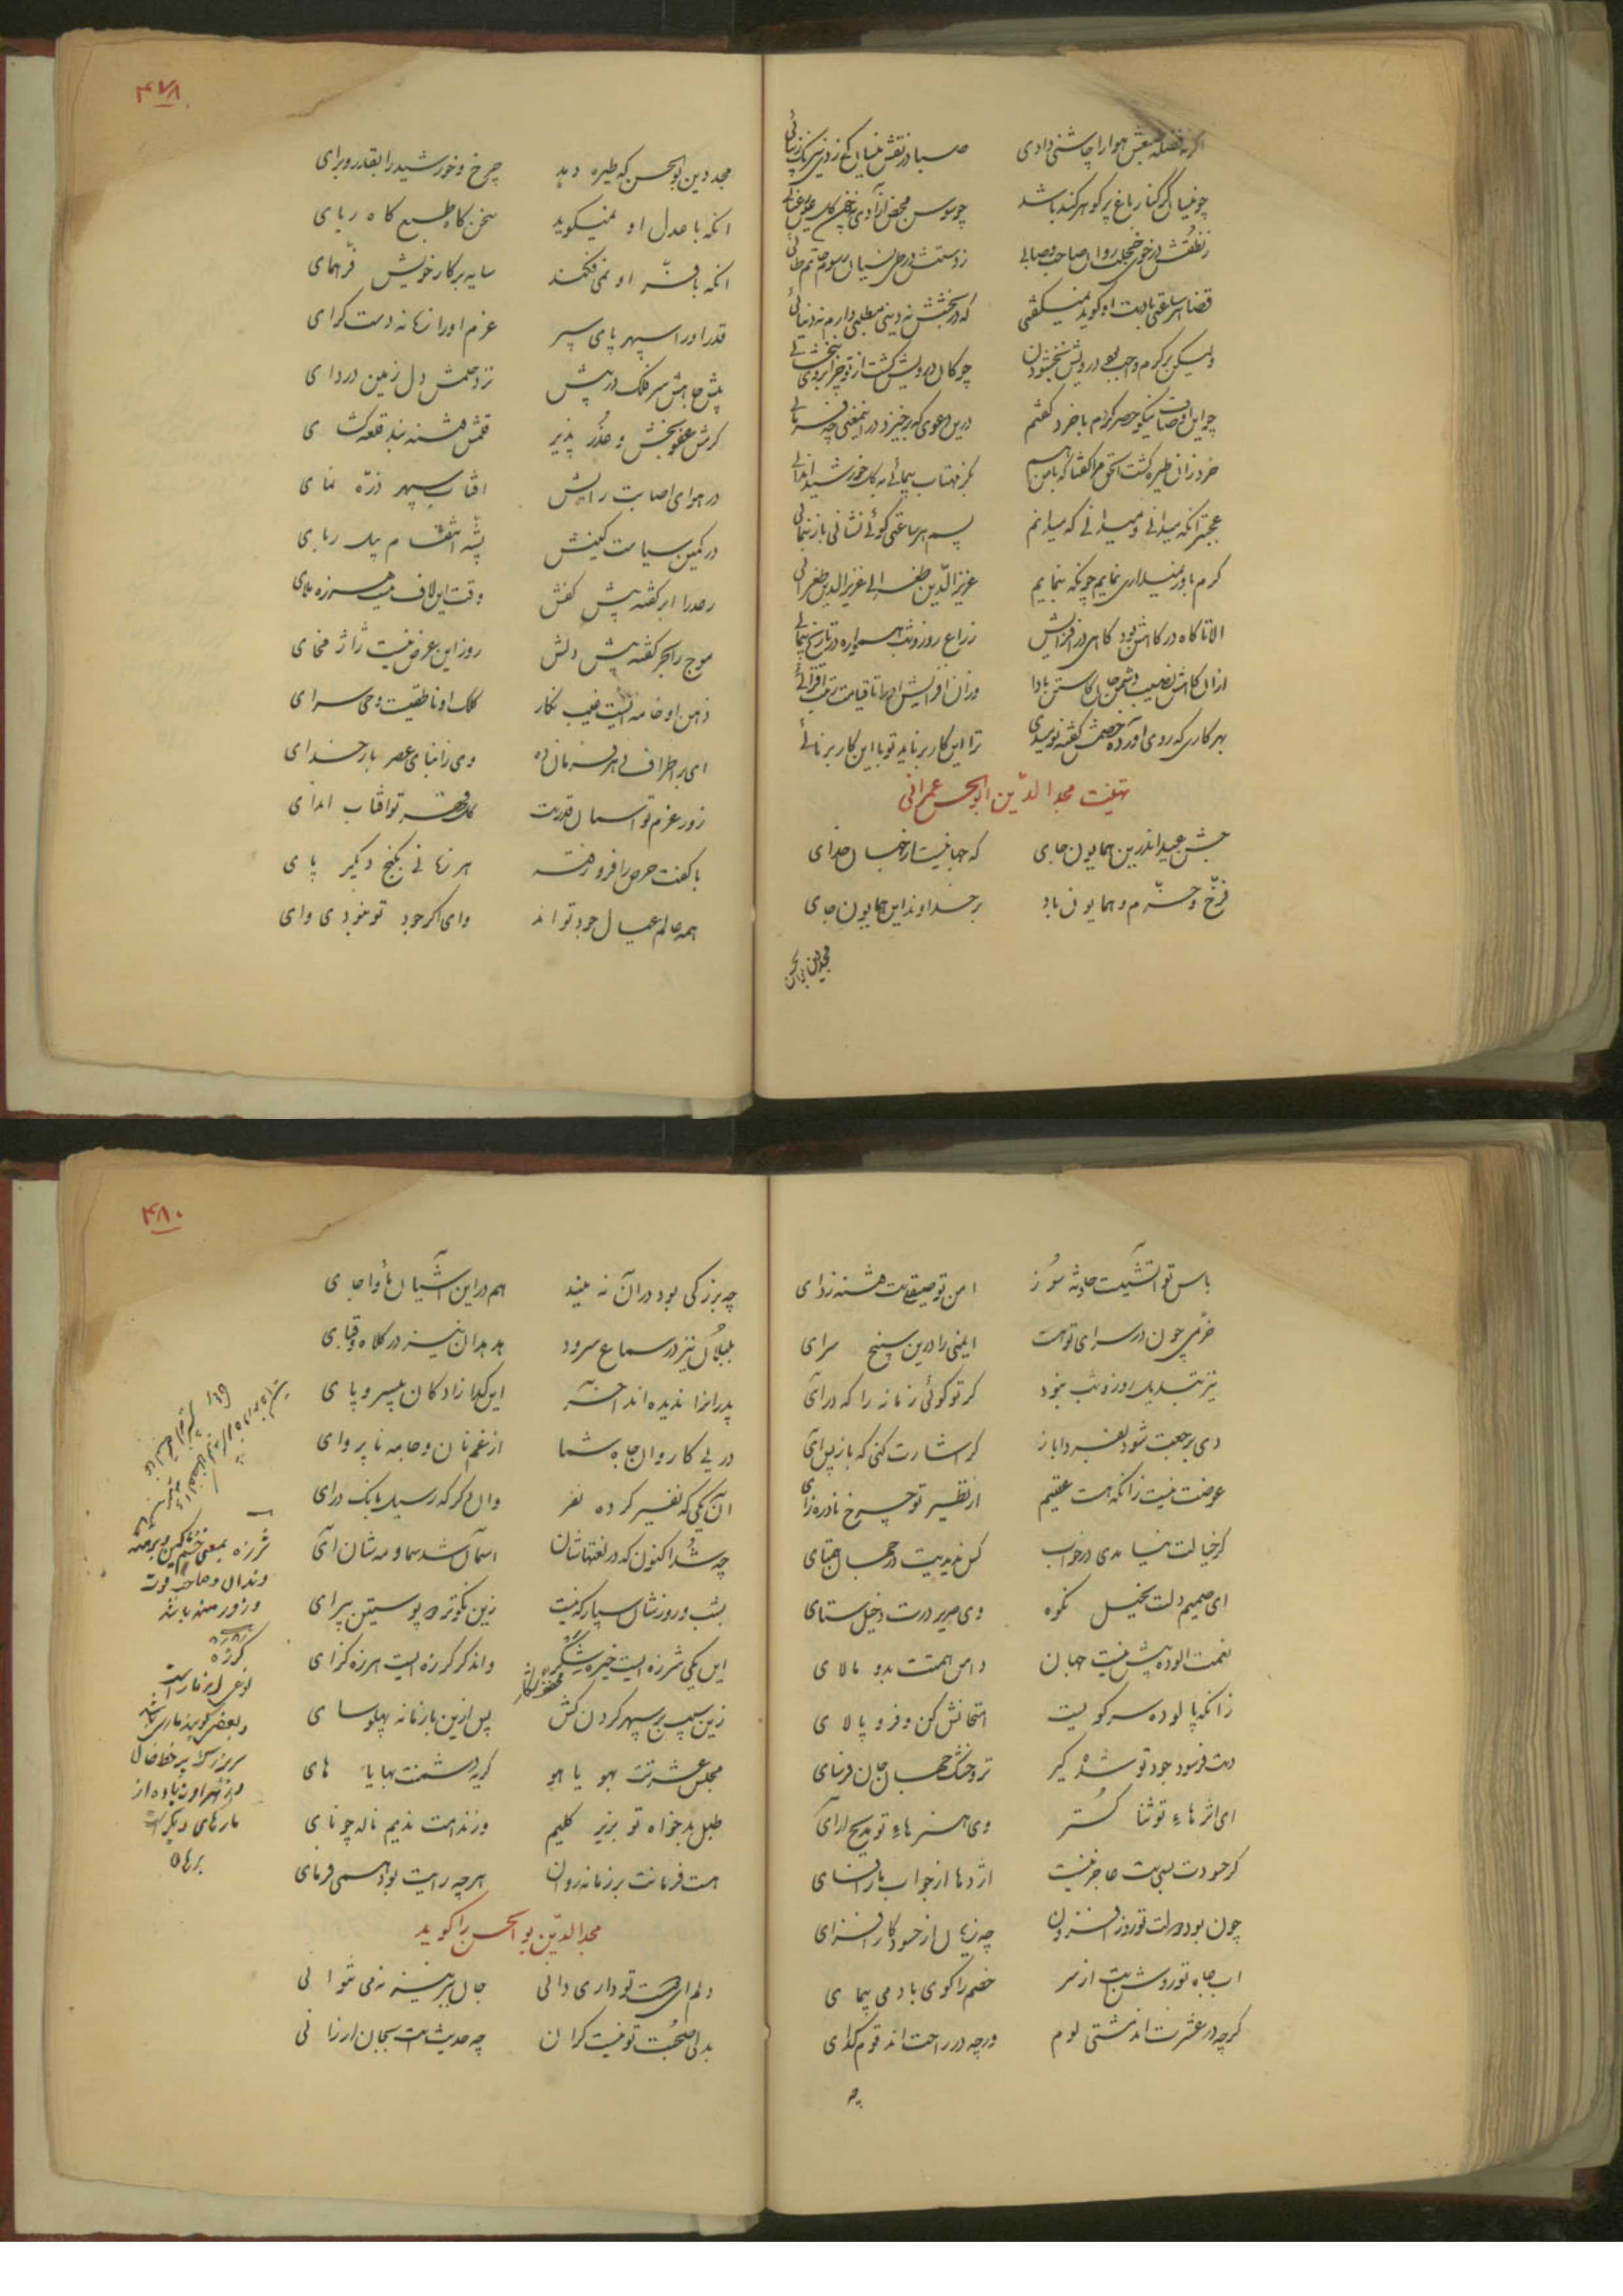 ۴۷۸
اگر نه فضله طبعش هوا را چاشنی دادی صبا در نقش نیسان کی زدی نیرنگ زیبائی
چو نیسان گر کنار باغ پر گوهر کند باشد چو سوسن محض آزادی
ز نطقش در خوی خجلت روان صاحب و صابی ز دستش در طی نسیان رسوم حاتم طائی
قضا هر ساعتی با دست او گوید نمیگفتی که در بخشش نه دینی مطلبی دارم نه دنیائی
ولیکن بر کرم واجب بود درویش بخشودن چو کان درویش گشت از تو چرا بر وی نبخشائی
چو این اوصاف نیکو حصر کردم با خرد گفتم درین دعوی که برخیزد در این معنی چه فرمائی
خرد زان طیره گشت الحق مرا گفتا که با من هم بگز مهتاب پیمائی به گل خورشید اندائی
عجبتر آنکه میدانی و میدانی که میدانم پس هر ساعتی گوئی نشانی باز ننمائی
گرم باور نمیداری نمایم چونکه بنمایم عزیزالدین طغرائی عزیزالدین طغرائی
الا تا گاه در کاهش بود گاهی در افزایش ز راغ روز و شب همواره در تاریخ پیمائی
ازان کاهش نصیب دشمن جان کاستن بادا وزان افزایش او را تا قیامت رتبت افزائی
بهر کاری که روی آورده خصمش گفته نومیدی ترا این کار برناید تو با این کار برنائی
تهنیت مجدالدین ابوالحسن عمرانی
جشن عید اندرین همایون جای که جهانیست از جهان خدای
فرخ و خرم و همایون باد بر خداوند این همایون جای
مجد دین بوالحسن
مجد دین بوالحسن که طیره دهد چرخ و خورشید را بقدر و برای
آنکه با عدل او نمیگوید سخن کاه طبع کاه ربای
آنکه با فر او نمی فکند سایه بر کار خویش فر همای
قدر او را سپهر پای سپر عزم او را زمانه دست گرای
پیش جاهش سر فلک در پیش نزد حلمش دل زمین دروای
کرمش عفو بخش و عذر پذیر قلمش فتنه بند قلعه گشای
در هوای اصابت رایش آفتاب سپهر ذره نمای
در کمین سیاست کینش پشه انتقام پیل ربای
رعد را ابر گفته پیش کفش وقت این لاف نیست هرزه ملای
موج را بحر گفته پیش دلش روز این عرض نیست ژاژ مخای
ذهن او خامه ایست غیب نگار کلک او ناطقیست وحی سرای
ای بر اطراف دهر فرمان ده وی ز ابنای عصر بار خدای
زور عزم تو آسمان قدرت کلک قهر تو آفتاب اندای
با کفت حرص را فرو رفته هر زمانی بگنج دیگر پای
همه عالم عیال جود تواند وای اگر جود تو نبودی وای
۴۸۰
باس تو آتشیست حادثه سوز امن تو صیقلیست فتنه زدای
خرمی چون در سرای تو هست ایمنی را درین سپنج سرای
نیز تبدیل روز و شب نبود گر تو گوئی زمانه را که در آی
دی برجعت شود بفردا باز گر اشارت کنی که باز پس آی
عوضت نیست زانکه هست عقیم از نظیر تو چرخ نادره زای
گر خیالت نیامدی در خواب کس ندیدیت در جهان همتای
ای صمیم دلت بخیل نکوه وی صریر درت دخیل ستای
نعمت آلوده بیش نیست جهان دامن همتت بدو مالای
زانکه پالوده سر کویت امتحانش کن و فرو پالای
دست فرسود جود تو شده گیر تر و خشک جهان جان فرسای
ای اثرهاء تو ثنا گستر وی هنرهاء تو مدیح آرای
گر حسودت بسیست عاجز نیست اژدها از جواب مار افسای
چون بود دولت تو روز افزون چه زیان از حسود کار افزای
آب جاه تو روشن است از سر خصم را گوی باد می پیمای
گرچه در عشرت اند مشتی لوم ورچه در راحت اند قوم گدای
چه
چه بزرگی بود در آن نه میند هم در این آشیان ماوا جای
بلبلان نیز در سماع سرود هدهدان نیز در کلاه و قبای
پدرانرا ندیده اند آخر این گدا زادگان بی سر و پای
در پی کاروان جاه شما از غم نان و جامه نا پروای
آن یکی که نفیر کرده نفر وان دگر که رسیل بانگ درای
چه شد اکنون که در لغتهاشان آسمان شد سما و مه شان آی
بشب و روزشان سپار که نیست زین نکوتر دو پوستین پیرای
این یکی شرزه ایست خیره شکر واندگر گرزه ایست هرزه گزای
زین سپس بر سپهر گردن کش پس ازین با زمانه پهلو سای
مجلس عشرتت بهو یا هو گریه دشمنت بهایا های
طبل بدخواه تو بزیر گلیم وز ندامت ندیم ناله چو نای
هست فرمانت بر زمانه روان هرچه رایت بود همی فرمای
مجدالدین بوالحسن را گوید
دلم ای دوست تو داری دانی جان ببر نیز نه می نتوانی
بدلی صحبت تو نیست گران چه حدیث است بجان ارزانی
شرزه بمعنی خشمگین و برهنه
دندان و صاحب قوت
و زور مند باشد
گرزه
نوعی از مار است
و بعضی گویند ماری باشد
سر بزرگ و پر خط و خال
و زهر او زیاده از
مارهای دیگر است
برهان